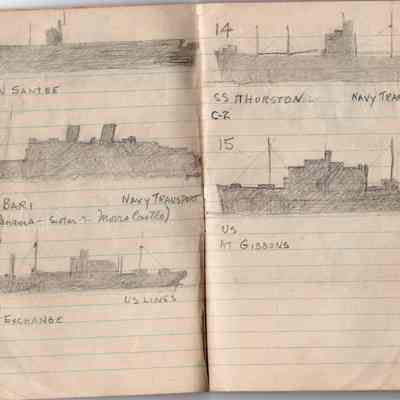 SANTEE
BARI NAVY TRANSPORT
- sister - Morro Castle)
US LINES
EXCHANGE
14
SS THORSTON NAVY TRAN
C-2
15
US
AT GIBBONS